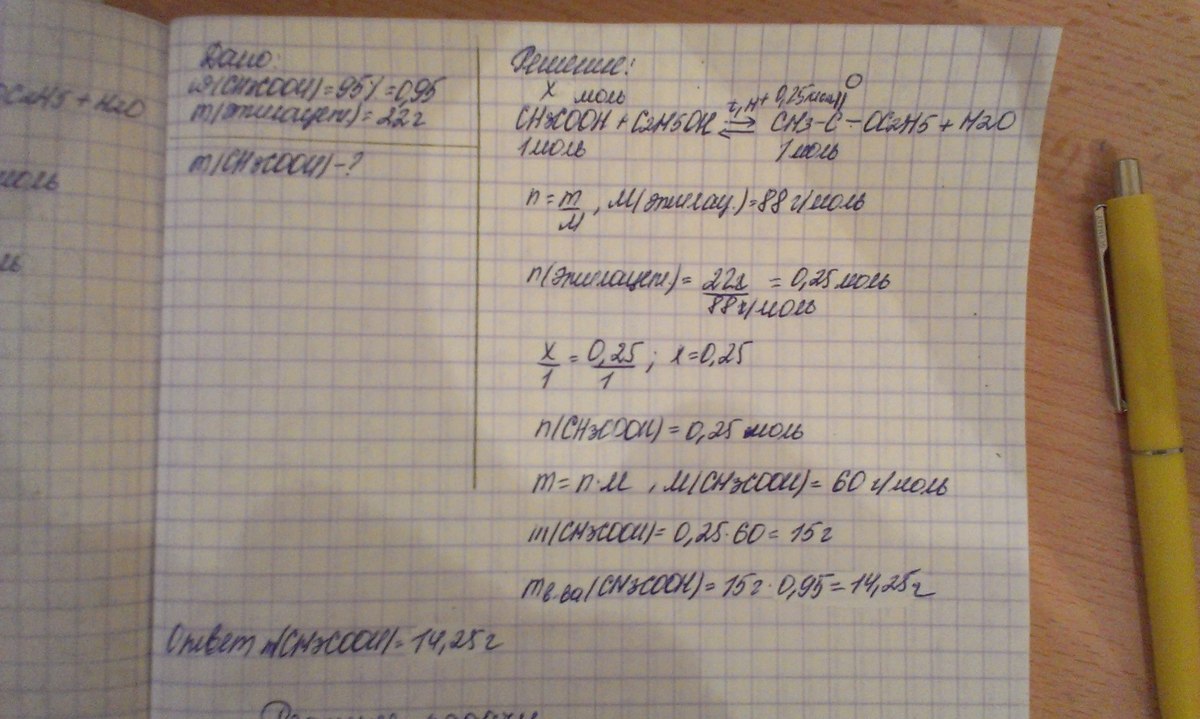 OC2H5 + H2O
моль
ль
Дано:
ω(CH3COOH)=95%=0,95
m(этилацет)=22г
m(CH3COOH)-?
Решение:
x моль
t, H+ 0,25моль O
CH3COOH + C2H5OH ⇄ CH3-C-OC2H5 + H2O
1моль 1моль
n=m/M, M(этилац.)=88 г/моль
n(этилацет.)= 22г/88г/моль = 0,25 моль
x/1 = 0,25/1 ; x=0,25
n(CH3COOH)=0,25 моль
m=n·M , M(CH3COOH)= 60 г/моль
m(CH3COOH)= 0,25·60= 15г
mв.ва(CH3COOH)= 15г·0,95=14,25г
Ответ m(CH3COOH)=14,25г